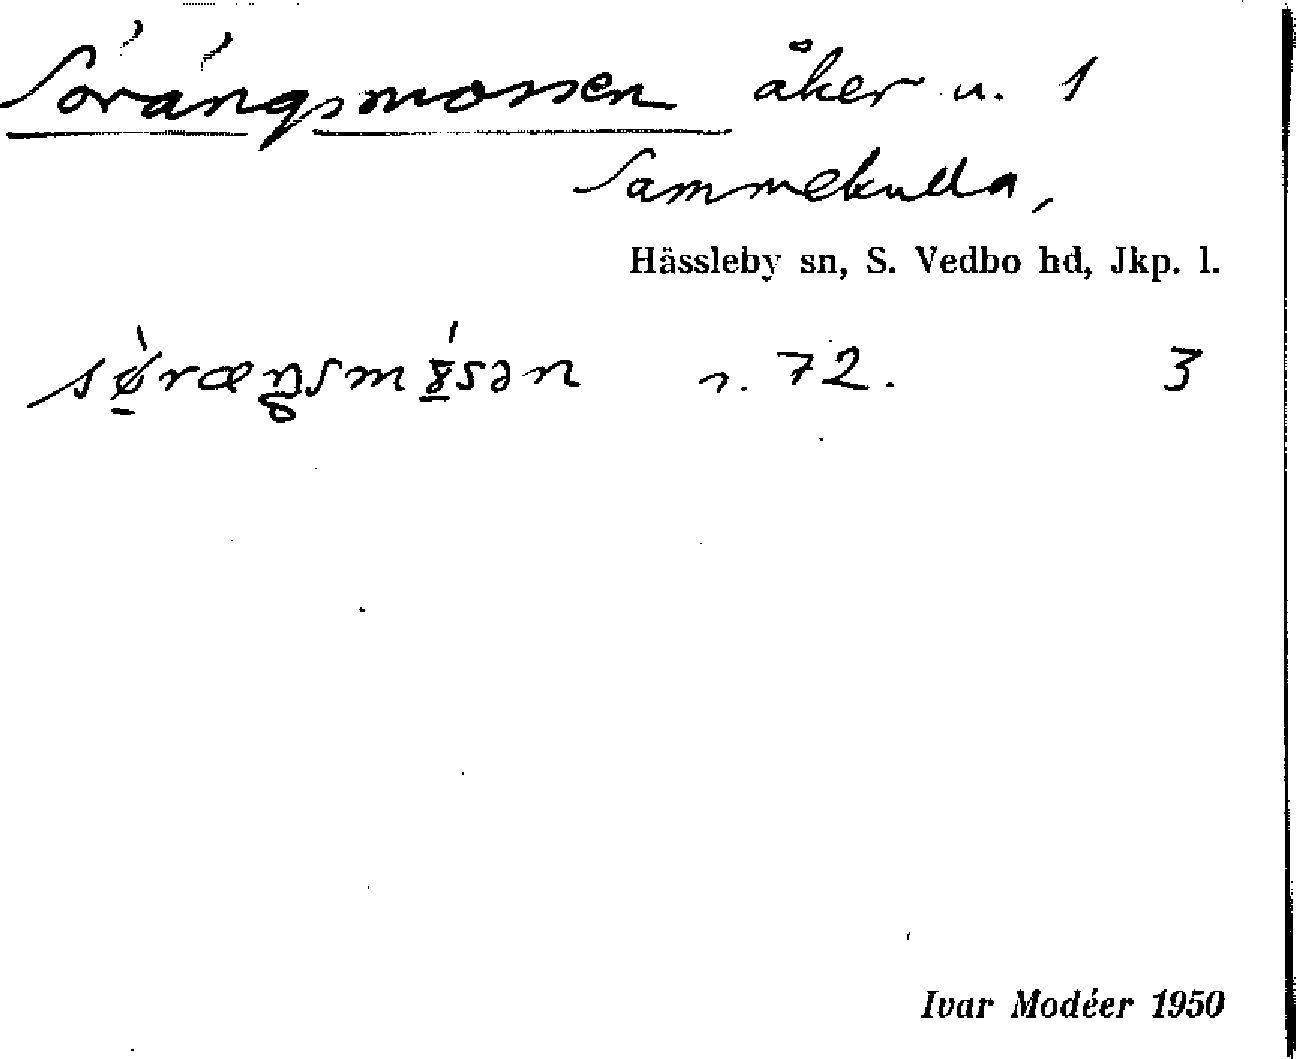 Sörängsmossen åker u. 1
Sammekulla,
Hässleby sn, S. Vedbo hd, Jkp. l.
sø̀ræŋsmósən n. 72. 3
Ivar Modéer 1950